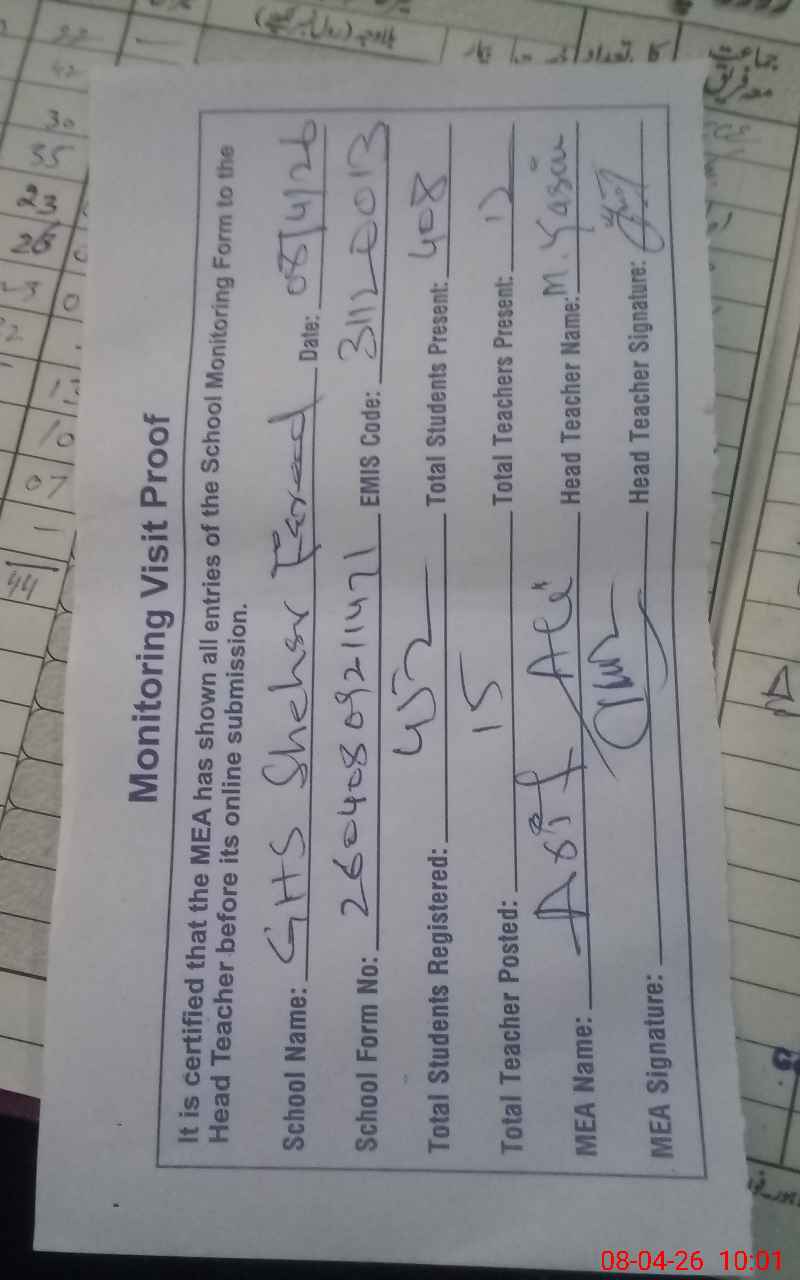 Monitoring Visit Proof
It is certified that the MEA has shown all entries of the School Monitoring Form to the
Head Teacher before its online submission.
School Name: GHS Shehar Fareed Date: 08/4/26
School Form No: 26040809211471 EMIS Code: 31120013
Total Students Registered: 452 Total Students Present: 408
Total Teacher Posted: 15 Total Teachers Present: 12
MEA Name: Asif Ali Head Teacher Name: M. Yasin
MEA Signature: Head Teacher Signature:
22
42
30
35
23
26
10
07
44
جماعت
کا تعداد
08-04-26 10:01